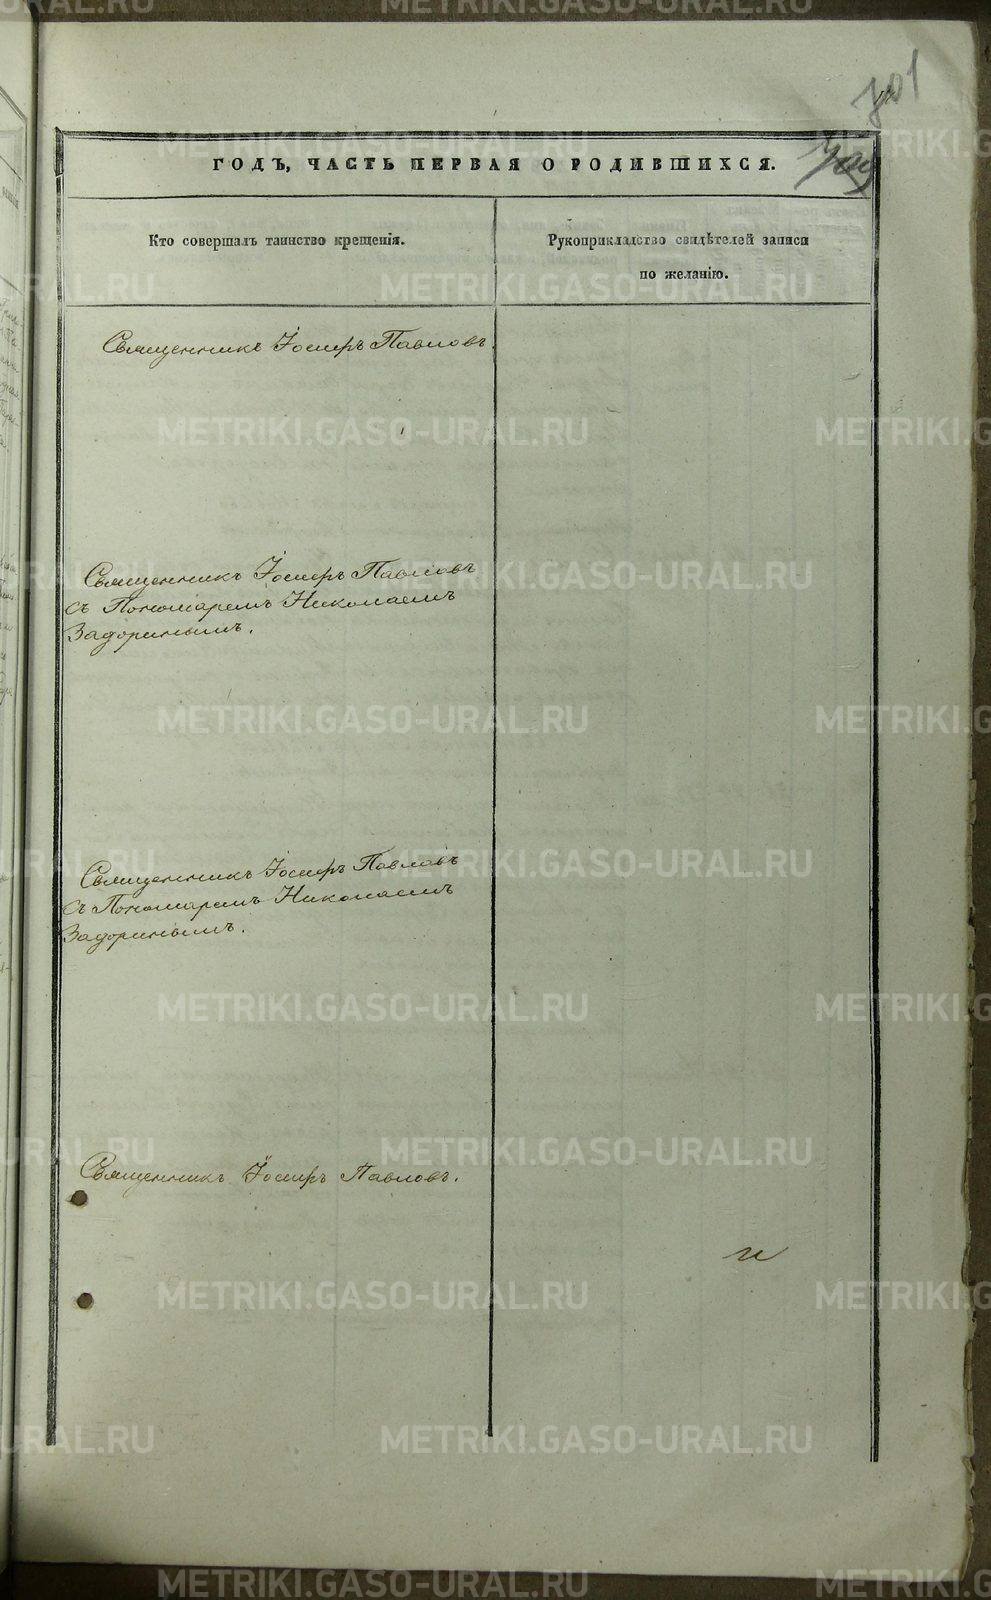 701
709
ГОДЪ, ЧАСТЬ ПЕРВАЯ О РОДИВШИХСЯ.
Кто совершалъ таинство крещенія.
Рукоприкладство свидѣтелей записи
по желанію.
Священникъ Іосифъ Павловъ.
Священникъ Іосифъ Павловъ
съ Пономаремъ Николаемъ
Задоринымъ.
Священникъ Іосифъ Павловъ
съ Пономаремъ Николаемъ
Задоринымъ.
Священникъ Іосифъ Павловъ.
METRIKI.GASO-URAL.RU